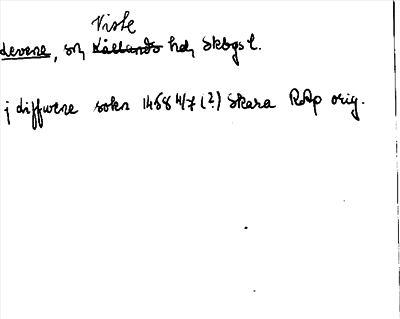 Viste
Levene, sn, Kållands hd, Skbgs l.
j diffwene sokn 1468 4/7 (?) Skara RAp orig.